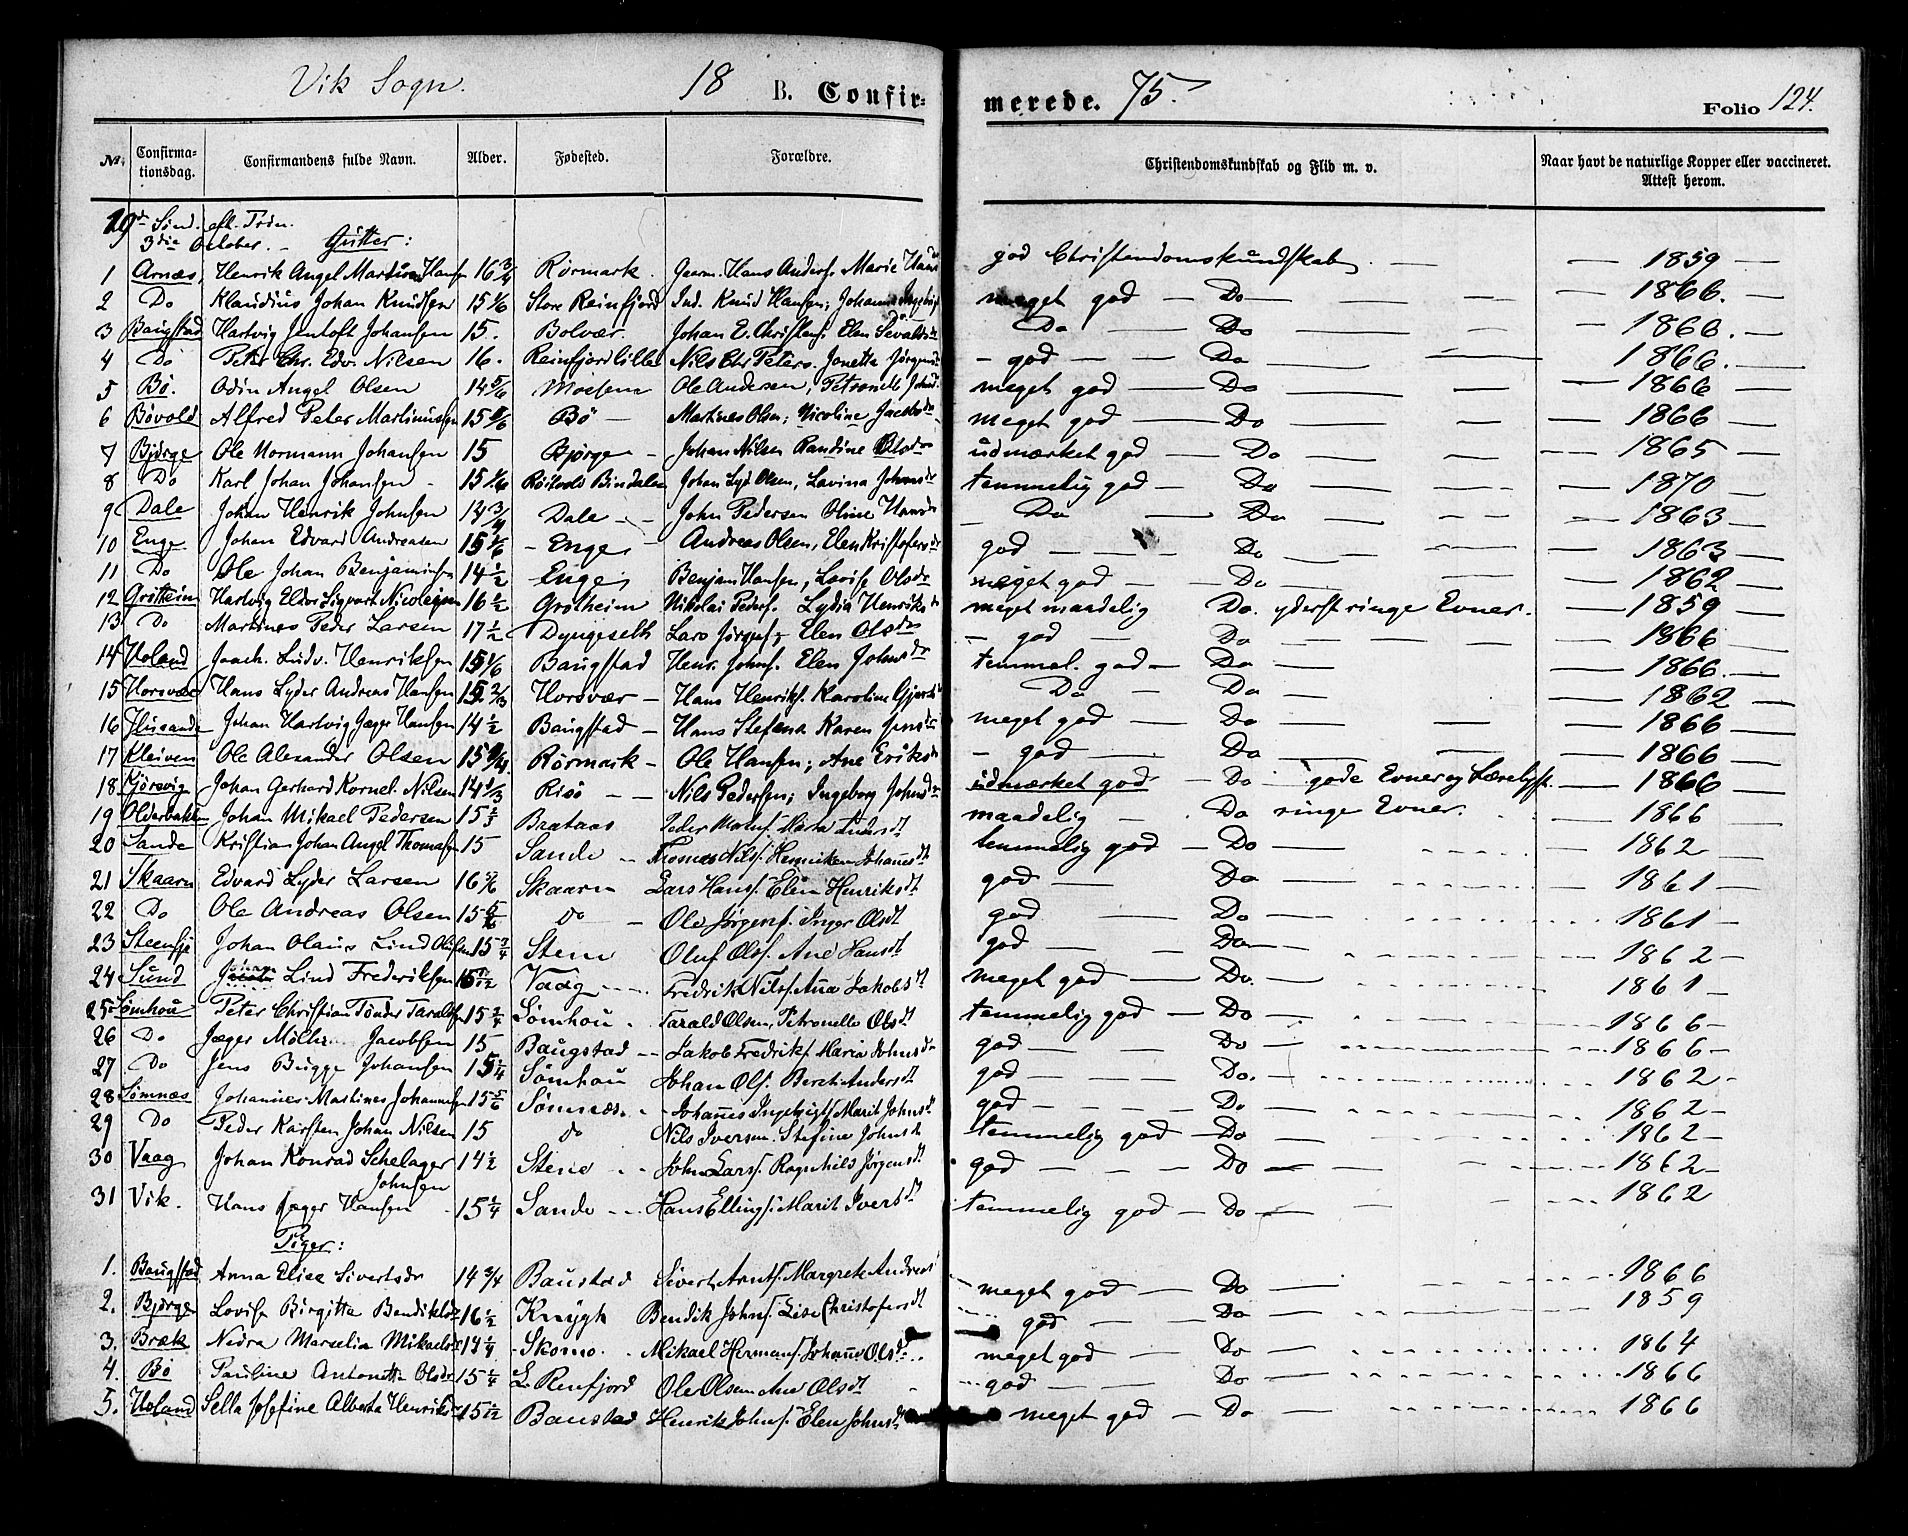 Vik Sogn. 18 B. Confir-merede. 75. Folio 124.
No. Confirmationsdag. Confirmandens fulde Navn. Alder. Fødested. Forældre. Christendomskundskab og Flid m. v. Naar havt de naturlige Kopper eller vaccineret. Attest herom.
19de Sønd. eft. Trin.
3die October. - Gutter:
1 Arnæs, Henrik Angel Hansen 16 3/4 Rørmark. Hans Anders. Marie god Christendomskundskab — 1859 —
2 Do Klaudius Johan Knudsen 15 1/6 Store Reinfjord Ind. Knud Hansen; Johanna meget god — Do — 1866. —
3 Baugstad Hartvig Jentoft Johansen 15. Bolvær. Johan E. Christens. Elen Do — Do — 1866. —
4 Do Peter Chr. Edv. Nilsen 16. Reinfjord lille Nils Chr Peters. Jonetta - god — Do — 1866. —
5 Bø. Odin Angel Olsen 14 5/6 Ole Andersen, meget god — Do — 1866 —
6 Bøvold Alfred Peter Martinussen 15 Bø — Martines Olsen; Nicoline Jacobsdr meget god — Do — 1866 —
7 Bjørge Ole Normann Johansen 15 Bjørge - Johan Nilsen Randine Olsdr udmærket god — Do — 1865 —
8 Do Karl Johan Johansen - 15 1/6 Bindalen Johan Lyd Olsen, Lavina Johnsdr temmelig god — Do — 1870 —
9 Dale Johan Henrik Johnsen 14 3/4 Dale - - John Pedersen Oline Hansdr Do — Do — 1863 —
10 Enge Johan Edvard Andreasen 15 1/6 - Enge - Andreas Olsen, Elen Kristofersdr god — Do — 1863 —
11 Do Ole Johan Benjaminsen 14 1/2 Enge Benjam Hansen, Lovise Olsdr meget god — Do — 1862 —
12 Grøtheim Hartvig Eldor Sigvart Nicolaisen 16 1/2 Grøtheim Nikolai Peders. Lydia Henriksdr meget maadelig Do. yderst ringe Evner. — 1859 —
13 Do Martines Peder Larsen 17 1/2 Dyngeseth Lars Jørgens. Elen Olsdr - god — Do — 1866 —
14 Holand Jaach. Ludv. Henriksen 15 1/6 Baugstad Henr. Johns. Elen Johnsdr temmel. god — Do — 1866. —
15 Horsvær Hans Lyder Andreas Hansen 15 2/3 Horsvær - Hans Henriks. Karoline Do — Do — 1862 —
16 Husande Johan Hartvig Jæger Hansen 14 1/2 Baugstad - Hans Karen Jensdr meget god — Do — 1866 —
17 Kleiven Ole Alexander Olsen 15 Rørmark - Ole Hansen; Ane Eriksdr - god — Do — 1866 —
18 Kjørsvig Johan Gerhard Kornel. Nilsen 14 1/3 Risø — Nils Pedersen; Ingeborg Johnsdr udmærket god - Do gode Evner og Lærelyst — 1866 —
19 Olderbakken Johan Mikael Pedersen 15 Brataas Peder Maria Andersdt maadelig — Do ringe Evner. 1866 —
20 Sande Kristian Johan Angel Thomassen 15 Sande — Thomas Nils. temmelig god — Do — 1862 —
21 Skaarn Edvard Lyder Larsen 16 5/6 Skaarn Lars Hans. Elen Henriksdt god — Do — 1861 —
22 Do Ole Andreas Olsen 15 5/6 do - Ole Jørgens. Inger Olsdt god Do — 1861 -
23 Johan Olaus Lind Olsen 15 3/4 Stene Oluf Ols. Ane Hansdt god — Do — 1862 —
24 Sund Lind Frederiksen 15 Vaag — Fredrik Nils. Ana Jakobsdt meget god — Do. — 1861 -
25 Sømhou Peter Christian Tønder Taraldsen 15 3/4 Sømhou - Tarald Olsen, Petronelle Olsdt temmelig god — Do — 1866 -
26 Do Jæger Møller Jacobsen 15 Baugstad -- Jakob Fredriks. Maria Johnsdr god — Do — 1866 -
27 Do Jens Bugge Johansen 15 1/4 Sømhou Johan Ols. Beret Andersdt god — Do. 1862 -
28 Sømnæs Johannes Martines Johannesen 15 5/6 Sømnæs. - Johanes Ingebrigts. Marit Johnsdt god — Do 1862 -
29 Do Peder Karsten Johan Nilsen 15 do Nils Iversen. Stefine Johnsdt temmelig god — Do 1862 -
30 Vaag Johan Konrad Schelager Johnsen 14 1/2 Stene - - John Lars. Ragnhild Jørgensdt god — Do — 1862 -
31 Vik. Hans Jæger Hansen 15 1/4 Sande - - Hans Ellings. Marit Iversdt temmelig god — Do — 1862
Piger:
1. Baugstad Anna Elise Sivertsdr 14 3/4 Baustad Sivert Arnts. Margrete Andreas - meget god — Do — 1866
2. Bjørge Lovise Birgitta Bendiksdr 16 1/2 Krøygh Bendik Johns. Lise Christofersdt god — Do — 1859
3. Bræk Marselia Mikaelsdr 14 1/4 - Skomo. - Mikael Hermans. Johanne Olsdr meget god — Do — 1864
4. Bø Pauline Antonette Olsdr 15 1/4 L. Renfjord Ole Olsen Ane Olsdt - god — Do — 1866
5. Holand Sella Josefine Alberta Henriksdr 15 Baustad Henrik Johns. Elen Johnsdt meget god — Do — 1866